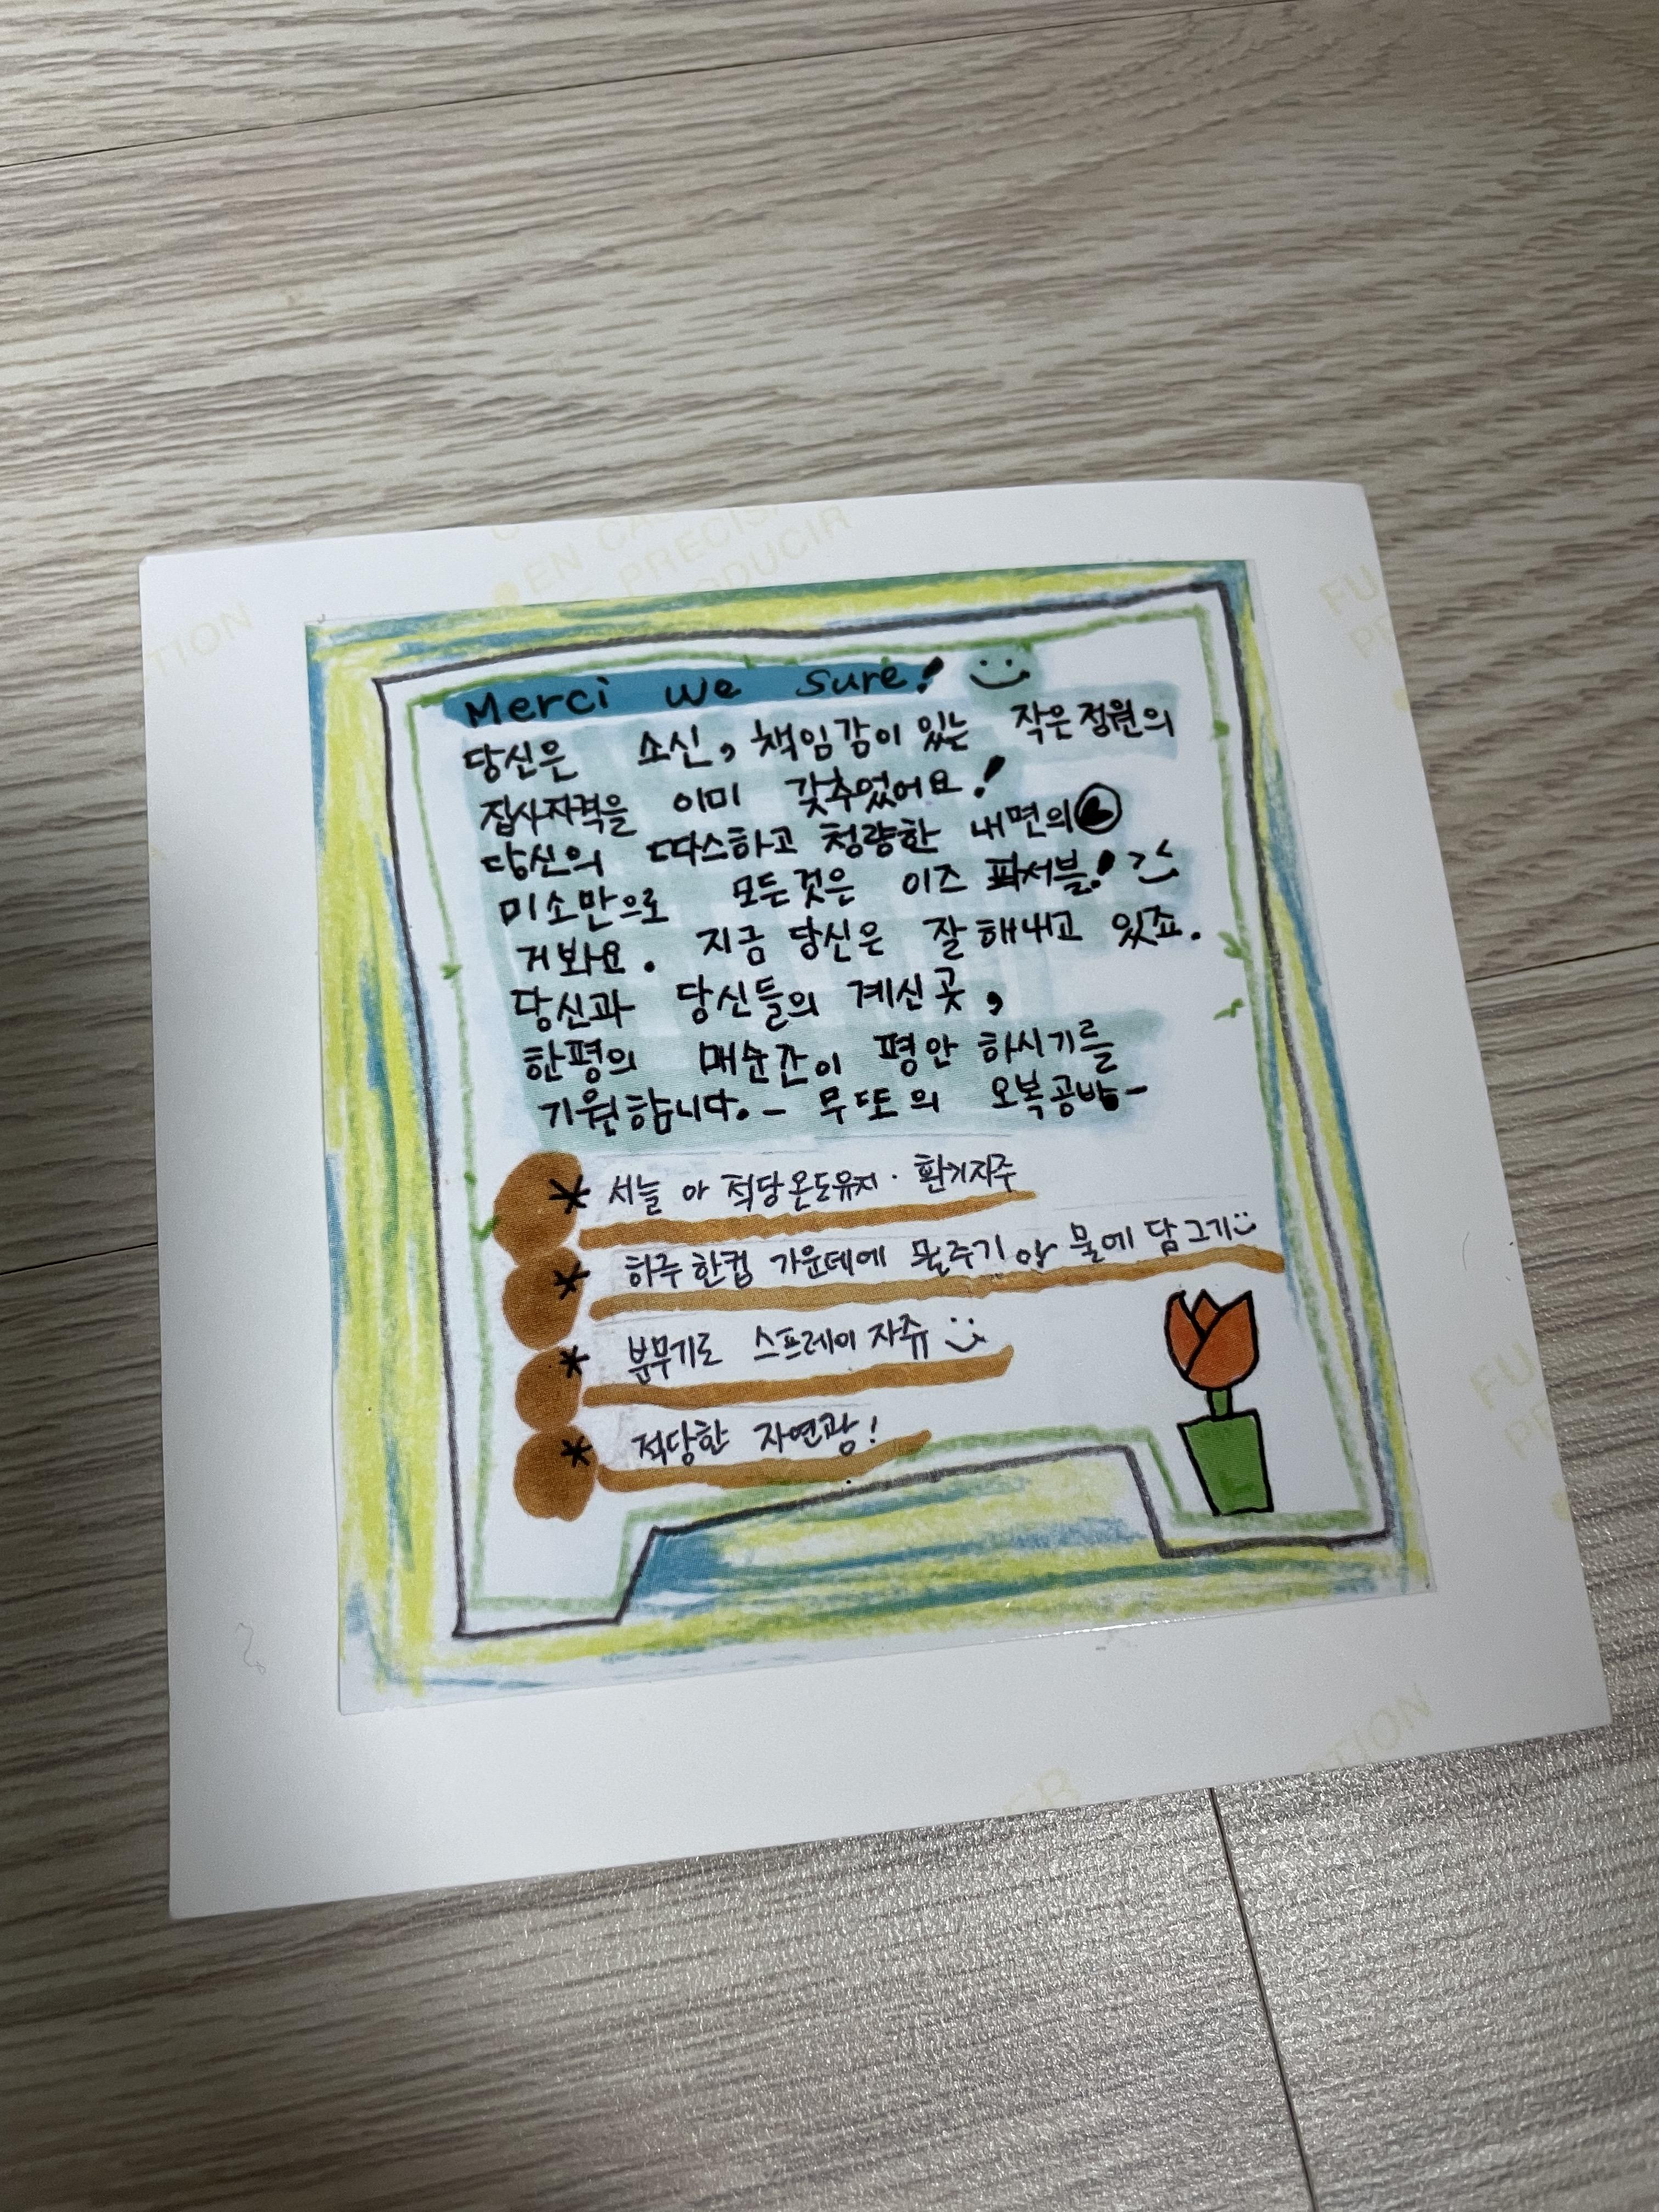 EN CA
PRECIS
ODUCIR
TION
FU
Merci we sure!
당신은 소신, 책임감이 있는 작은정원의
집사자격을 이미 갖추었어요!
당신의 따스하고 청량한 내면의
미소만으로 모든것은 이즈 파서블!
거봐요. 지금 당신은 잘해내고 있죠.
당신과 당신들의 계신곳,
한평의 매순간이 평안 하시기를
기원합니다. - 무또의 오복공방-
* 서늘 아 적당온도유지 · 환기자주
* 하루 한컵 가운데에 물주기 아 물에 담그기
* 분무기로 스프레이 자쥬
* 적당한 자연광!
FU
TION